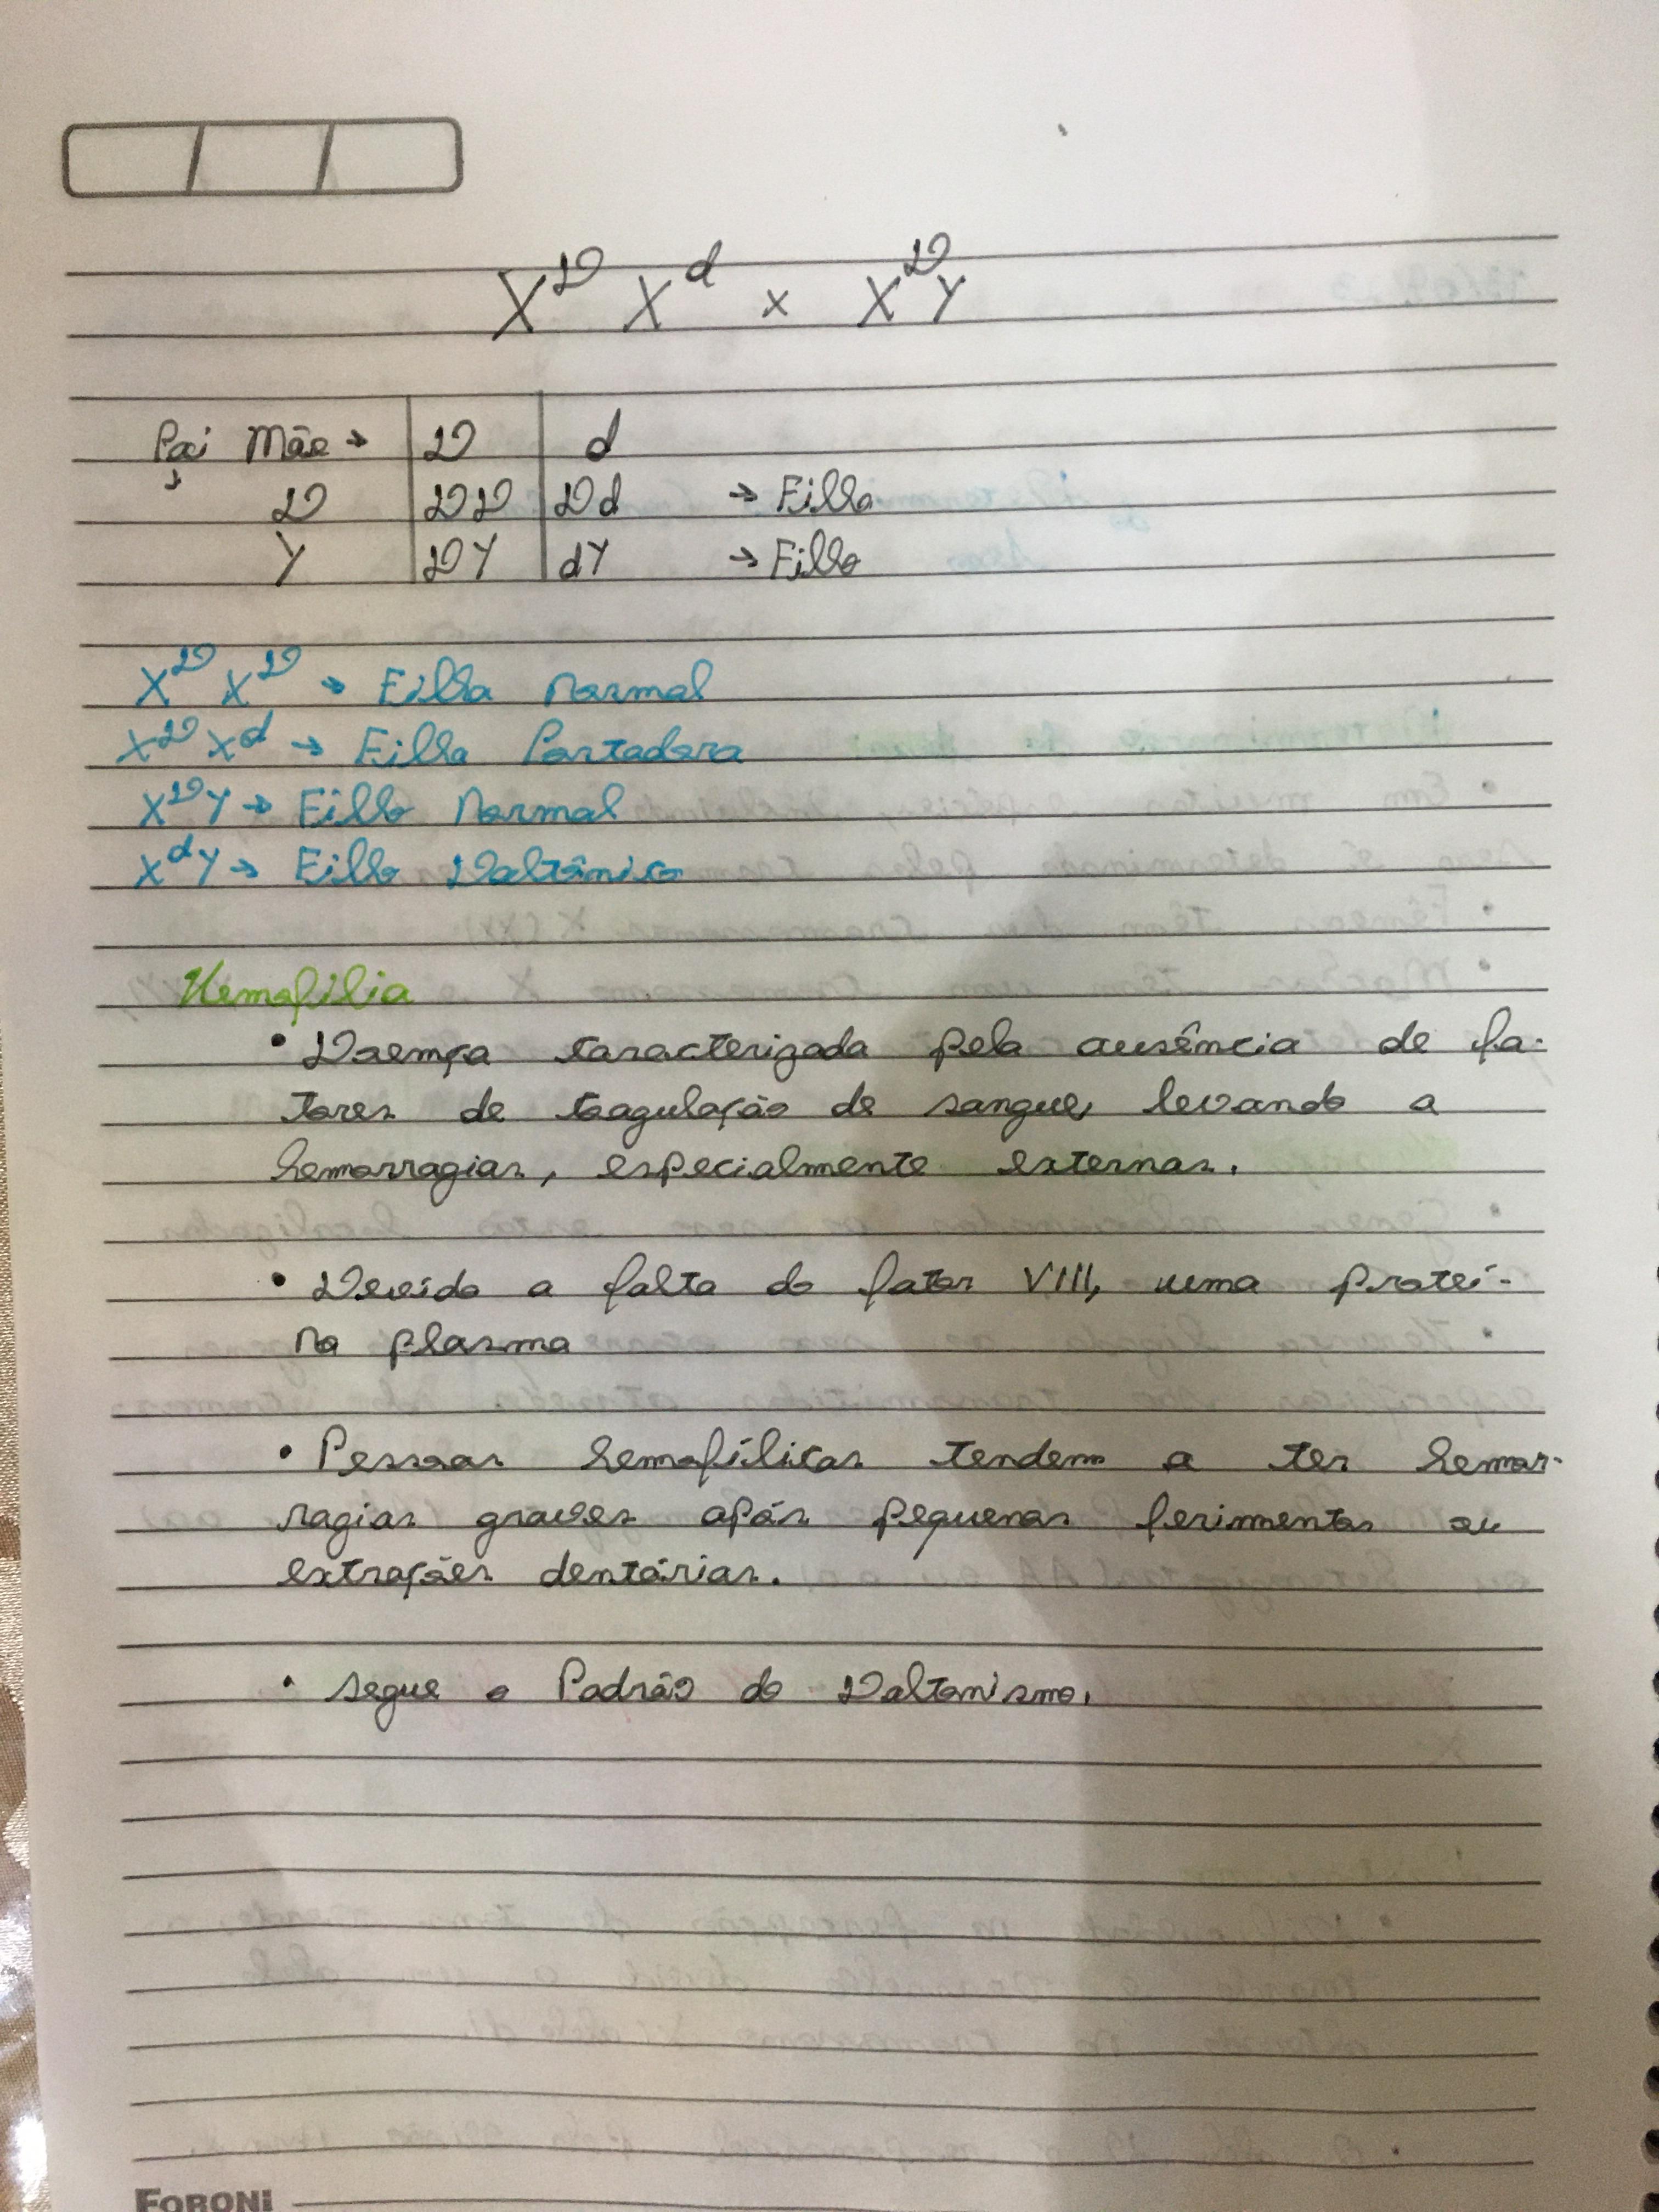 X^D X^d x X^D Y
Pai Mãe → D d
↓ D DD Dd → Filha
Y DY dY → Filho
X^D X^D → Filha Normal
X^D X^d → Filha Portadora
X^D Y → Filho Normal
X^d Y → Filho Daltônico
Hemofilia
• Doença caracterizada pela ausência de fa-
tores de coagulação de sangue, levando a
hemorragias, especialmente externas.
• Devido a falta do fator VIII, uma proteí-
na plasma
• Pessoas hemofílicas tendem a ter hemor-
ragias graves após pequenos ferimentos ou
extrações dentárias.
• segue o Padrão do Daltonismo.
FORONI